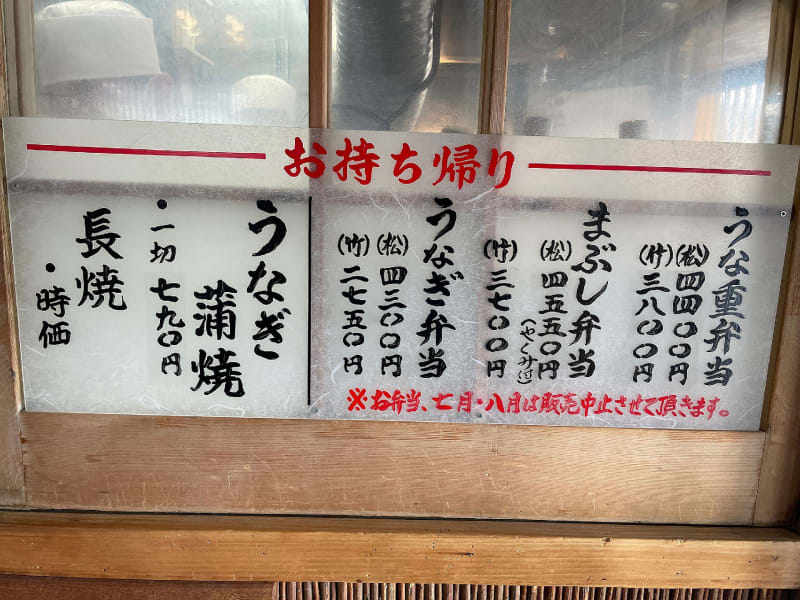 お持ち帰り
うな重弁当
(松)四四〇〇円
(竹)三八〇〇円
まぶし弁当
(松)四五五〇円
(やくみ付)
(竹)三七〇〇円
うなぎ弁当
(松)四三〇〇円
(竹)二七五〇円
うなぎ
蒲焼
・一切 七九〇円
長焼
・時価
※お弁当、七月・八月は販売中止させて頂きます。